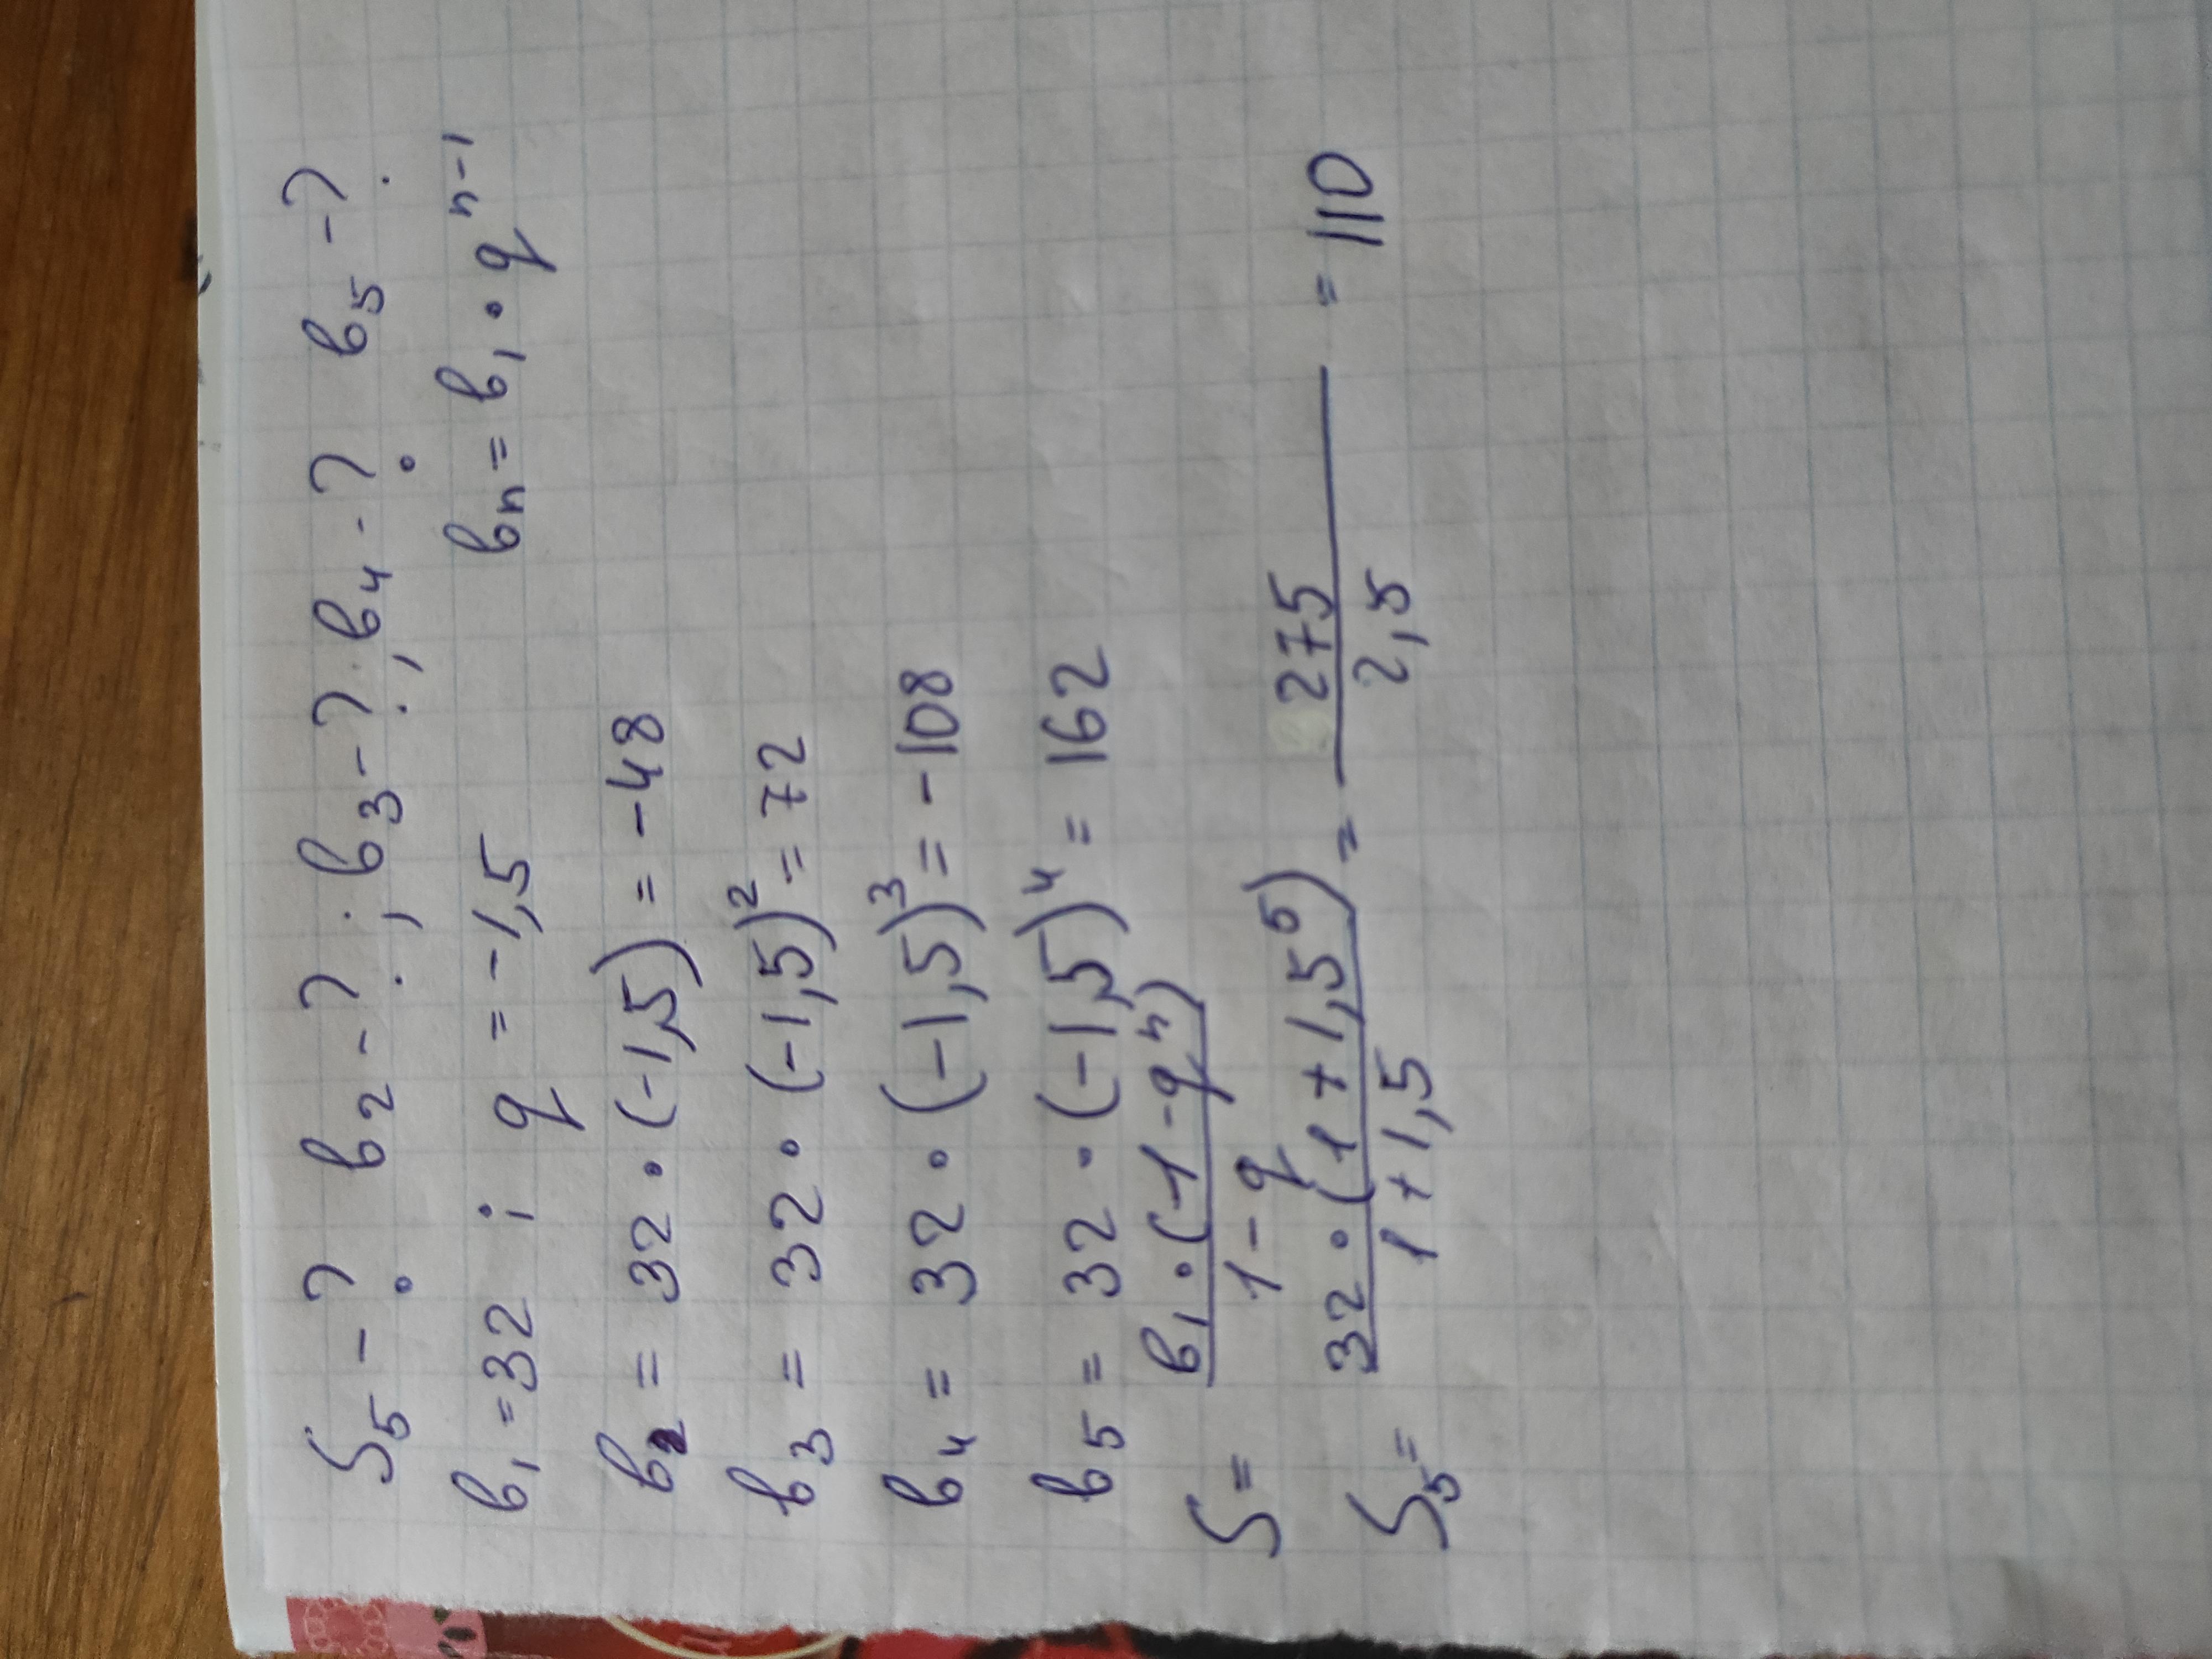 S₅ - ? в₂ - ? ; в₃ - ? ; в₄ - ? в₅ - ?
в₁ = 32 ; q = -1,5 вₙ = в₁ · qⁿ⁻¹
в₂ = 32 · (-1,5) = -48
в₃ = 32 · (-1,5)² = 72
в₄ = 32 · (-1,5)³ = -108
в₅ = 32 · (-1,5)⁴ = 162
S = в₁ · (1 - qⁿ) / 1 - q
S₅ = 32 · (1 + 1,5⁵) / 1 + 1,5 = 275 / 2,5 = 110